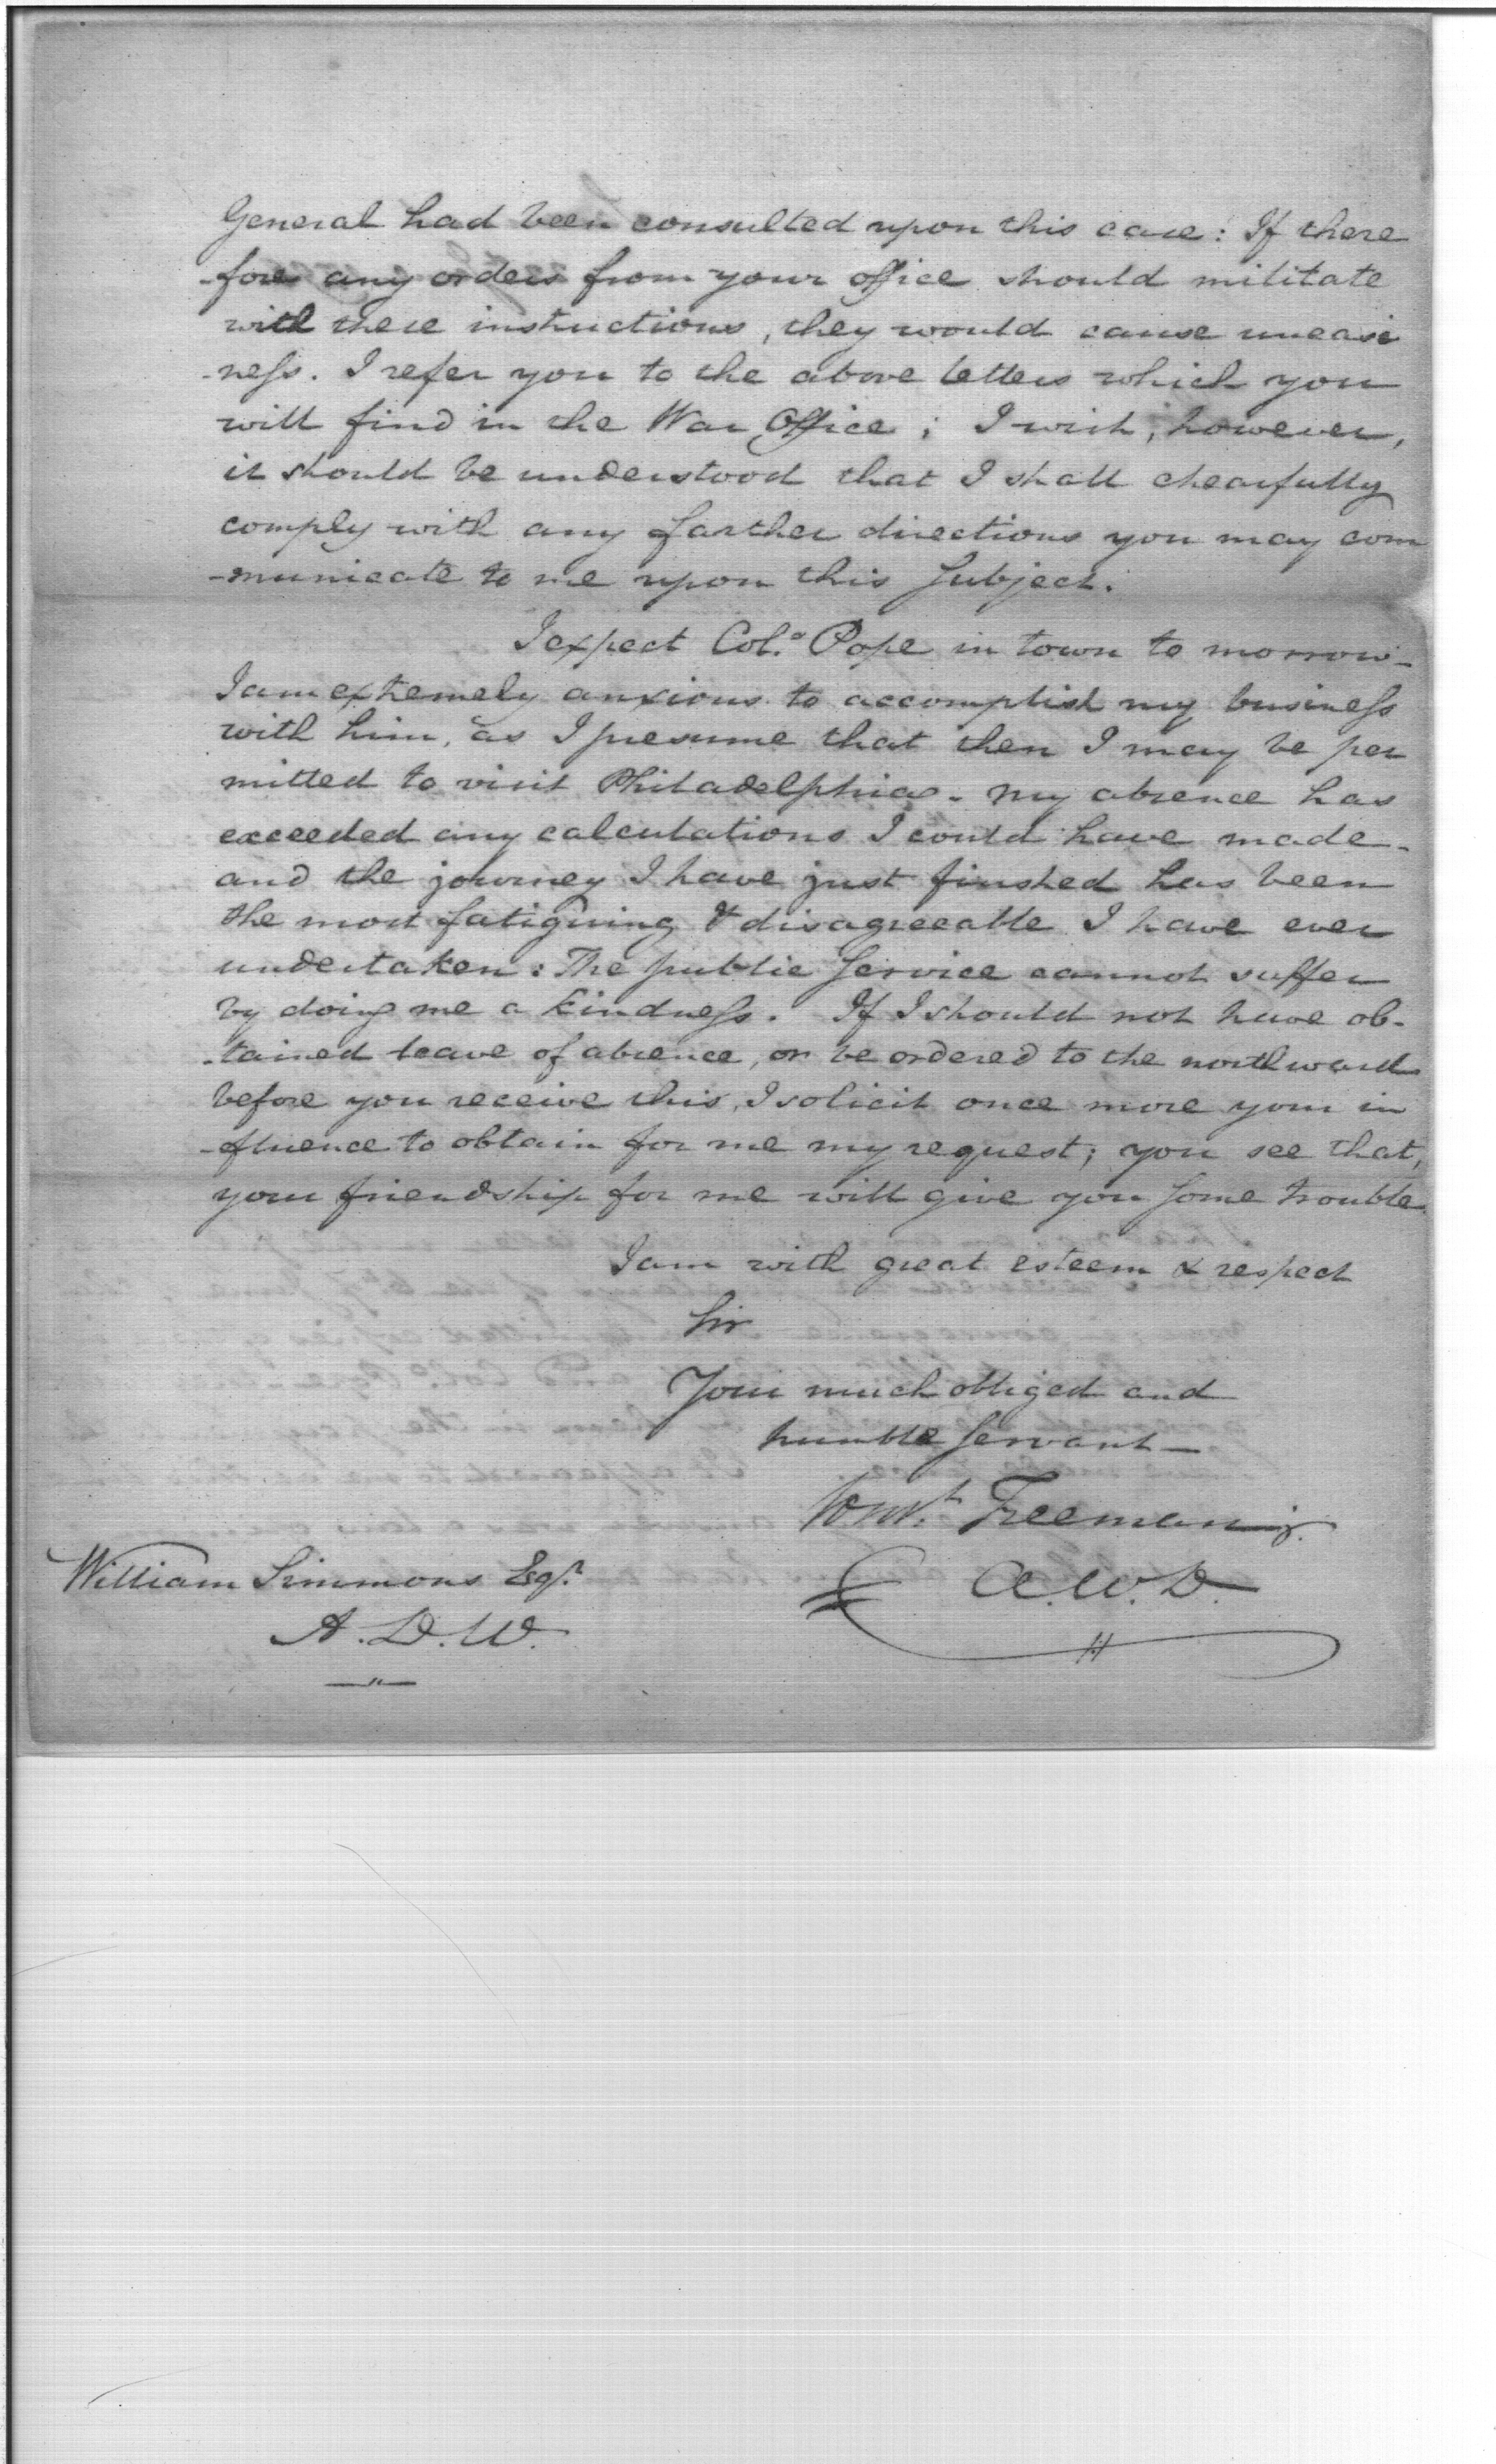 General had been consulted upon this case: If there
-fore any orders from your office should militate
with these instructions, they would cause uneasi
-ness. I refer you to the above letters which you
will find in the War Office; I wish, however,
it should be understood that I shall chearfully
comply with any farther directions you may com
-municate to me upon this Subject.
I expect Col.o Pope in town to morrow-
I am extremely anxious to accomplish my business
with him, as I presume that then I may be per
mitted to visit Philadelphia - my absence has
exceeded any calculations I could have made-
and the journey I have just finshed has been
the most fatiguing & disagreeable I have ever
undertaken: The public Service cannot suffer
by doing me a kindness. If I should not have ob-
-tained leave of absence, or be ordered to the northward
before you receive this, I solicit once more your in
-fluence to obtain for me my request; you see that,
your friendship for me will give you some trouble.
I am with great esteem & respect
Sir
Your much obliged and
humble Servant-
Const. Freeman jr.
A. W. D.
William Simmons Esqr.
A. D. W.